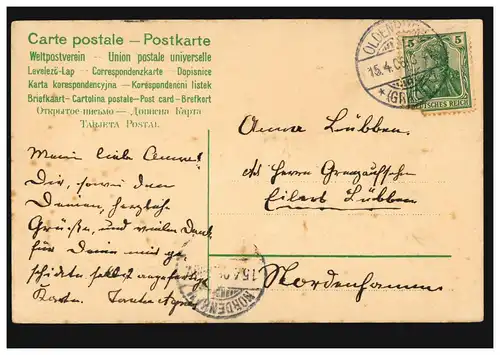 Carte postale — Postkarte
Weltpostverein — Union postale universelle
Levelező-Lap — Correspondenzkarte — Dopisnice
Karta korespondencyjna — Korespondenční lístek
Briefkaart — Cartolina postale — Post card — Brefkort
Открытое письмо — Дописна Карта
TARJETA POSTAL
OLDENBURG
15.4.06
*(GR.)
5 5
DEUTSCHES REICH
Anna Lübben.
Herrn
Eilert Lübben
Nordenhamm
Mein liebe Anna!
Dir, sowie den
Deinen, herzlich
Grüße, und vielen Dank
für Deine mir ge-
schickten selbst angefertigt
Karten. Tante
NORDENHAM
15.4.06